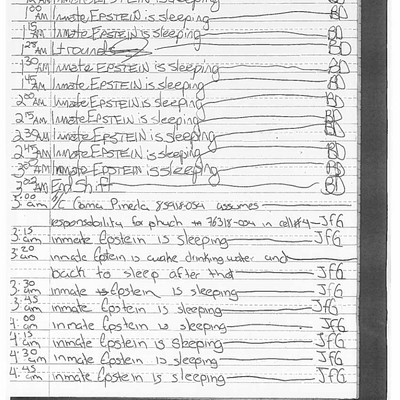 AM Inmate EPSTEIN is sleeping
1:00 AM Inmate EPSTEIN is sleeping BD
1:15 AM Inmate EPSTEIN is sleeping BD
1:28 AM Lt round BD
1:30 AM Inmate EPSTEIN is sleeping BD
1:45 AM Inmate EPSTEIN is sleeping BD
2:00 AM Inmate EPSTEIN is sleeping BD
2:15 AM Inmate EPSTEIN is sleeping BD
2:30 AM Inmate EPSTEIN is sleeping BD
2:45 AM Inmate EPSTEIN is sleeping BD
3:00 AM Inmate EPSTEIN is sleeping BD
AM End Shift BD
3:00 am I/C Pineda assumes
responsability for 76318-054 in cell#4 JfG
3:15 am inmate Epstein is sleeping JfG
3:20 am inmate Epstein is awake drinking water and
back to sleep after that JfG
3:30 am inmate Epstein is sleeping JfG
3:45 am inmate Epstein is sleeping JfG
4:00 am inmate Epstein is sleeping JfG
4:15 am inmate Epstein is sleeping JfG
4:30 am inmate Epstein is sleeping JfG
4:45 am inmate Epstein is sleeping JfG